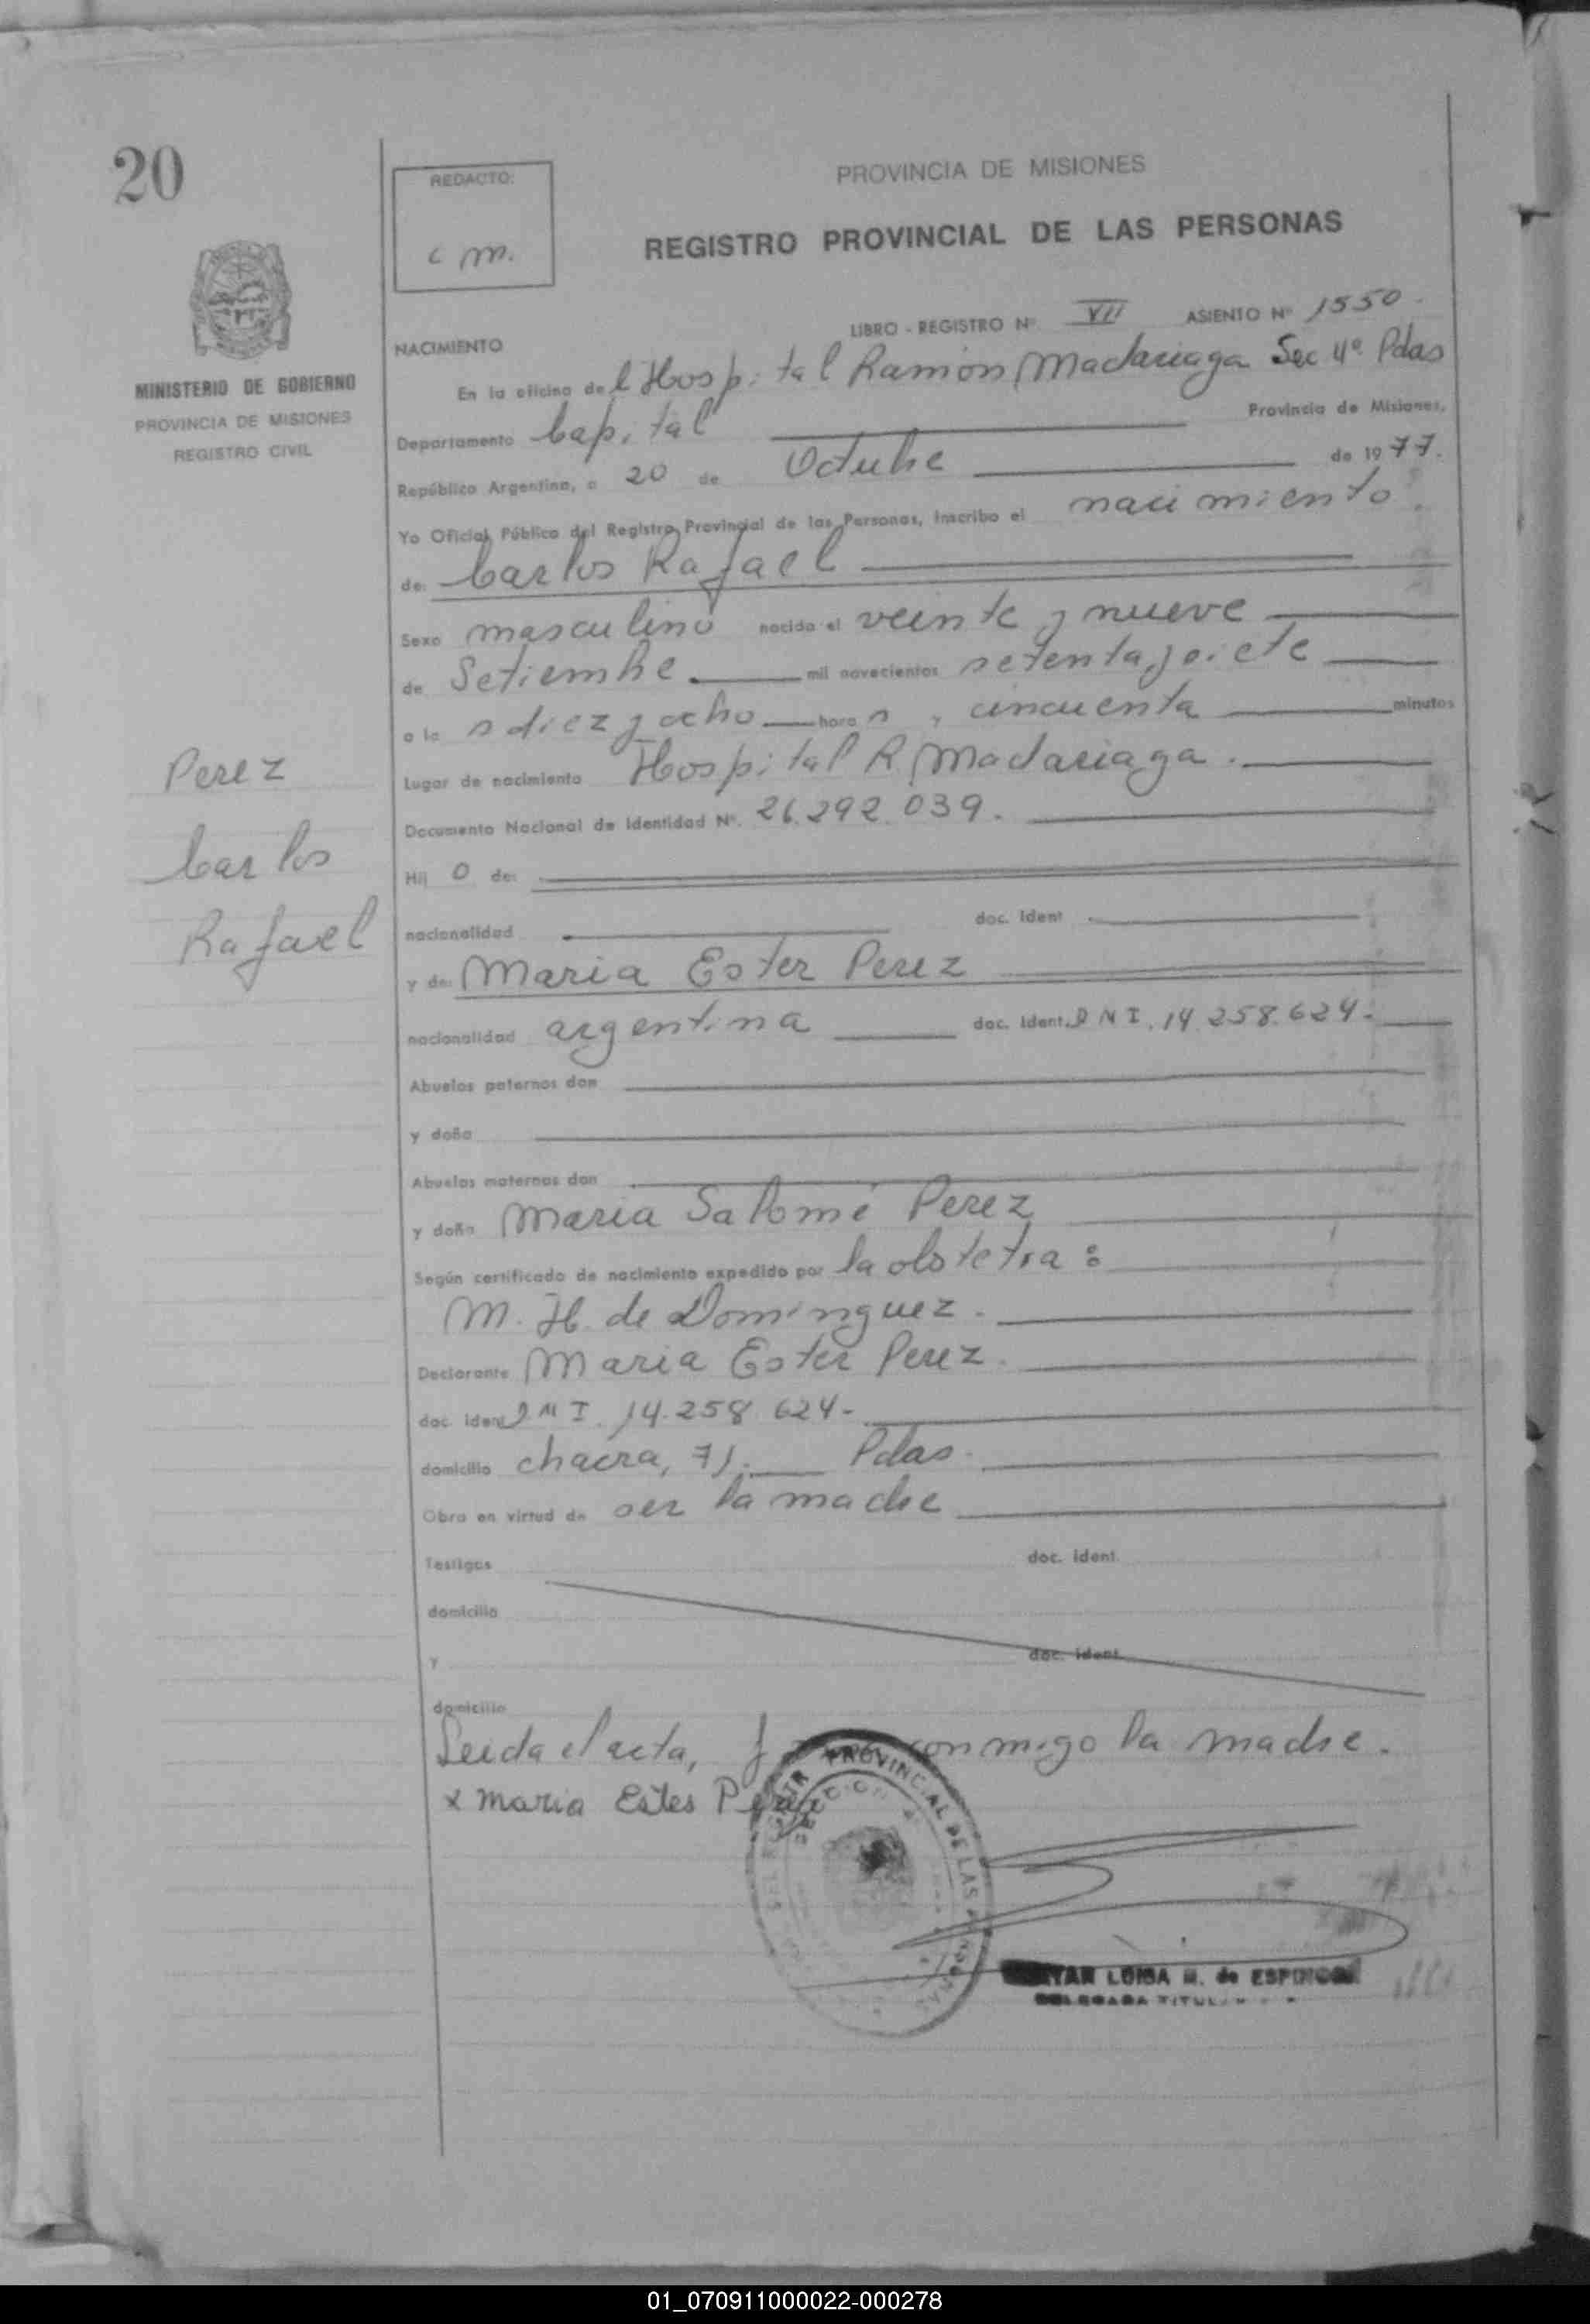 20
REDACTO:
c m.
PROVINCIA DE MISIONES
REGISTRO PROVINCIAL DE LAS PERSONAS
MINISTERIO DE GOBIERNO
PROVINCIA DE MISIONES
REGISTRO CIVIL
LIBRO - REGISTRO Nº VII ASIENTO Nº 1550.
NACIMIENTO
En la oficina del Hospital Ramón Madariaga Sec 4º Pdas
Departamento Capital Provincia de Misiones,
República Argentina, a 20 de Octubre de 1977.
Yo Oficial Público del Registro Provincial de las Personas, inscribo el nacimiento
de: Carlos Rafael
Sexo masculino nacido el veinte y nueve
de Setiembre mil novecientos setenta y siete
a la s diez y ocho hora s y cincuenta minutos
Lugar de nacimiento Hospital R Madariaga.
Documento Nacional de Identidad Nº. 26.292.039.
Hij o de:
nacionalidad doc. Ident
y de: Maria Ester Perez
nacionalidad argentina doc. Ident. DNI. 14.258.624.
Abuelos paternos don
y doña
Abuelos maternos don
y doña Maria Salomé Perez
Según certificado de nacimiento expedido por la obstetra:
M. H. de Dominguez.
Declarante Maria Ester Perez.
doc. ident DNI. 14.258.624-
domicilio chacra, 71. Pdas.
Obra en virtud de ser la madre
Testigos doc. ident.
domicilio
y doc. ident.
domicilio
Leida el acta, conmigo la madre.
x Maria Ester Perez
Perez
Carlos
Rafael
PROVINCIAL DE LAS
SECCION
LUISA M. de ESPINOSA
DELEGADA TITULAR
01_070911000022-000278